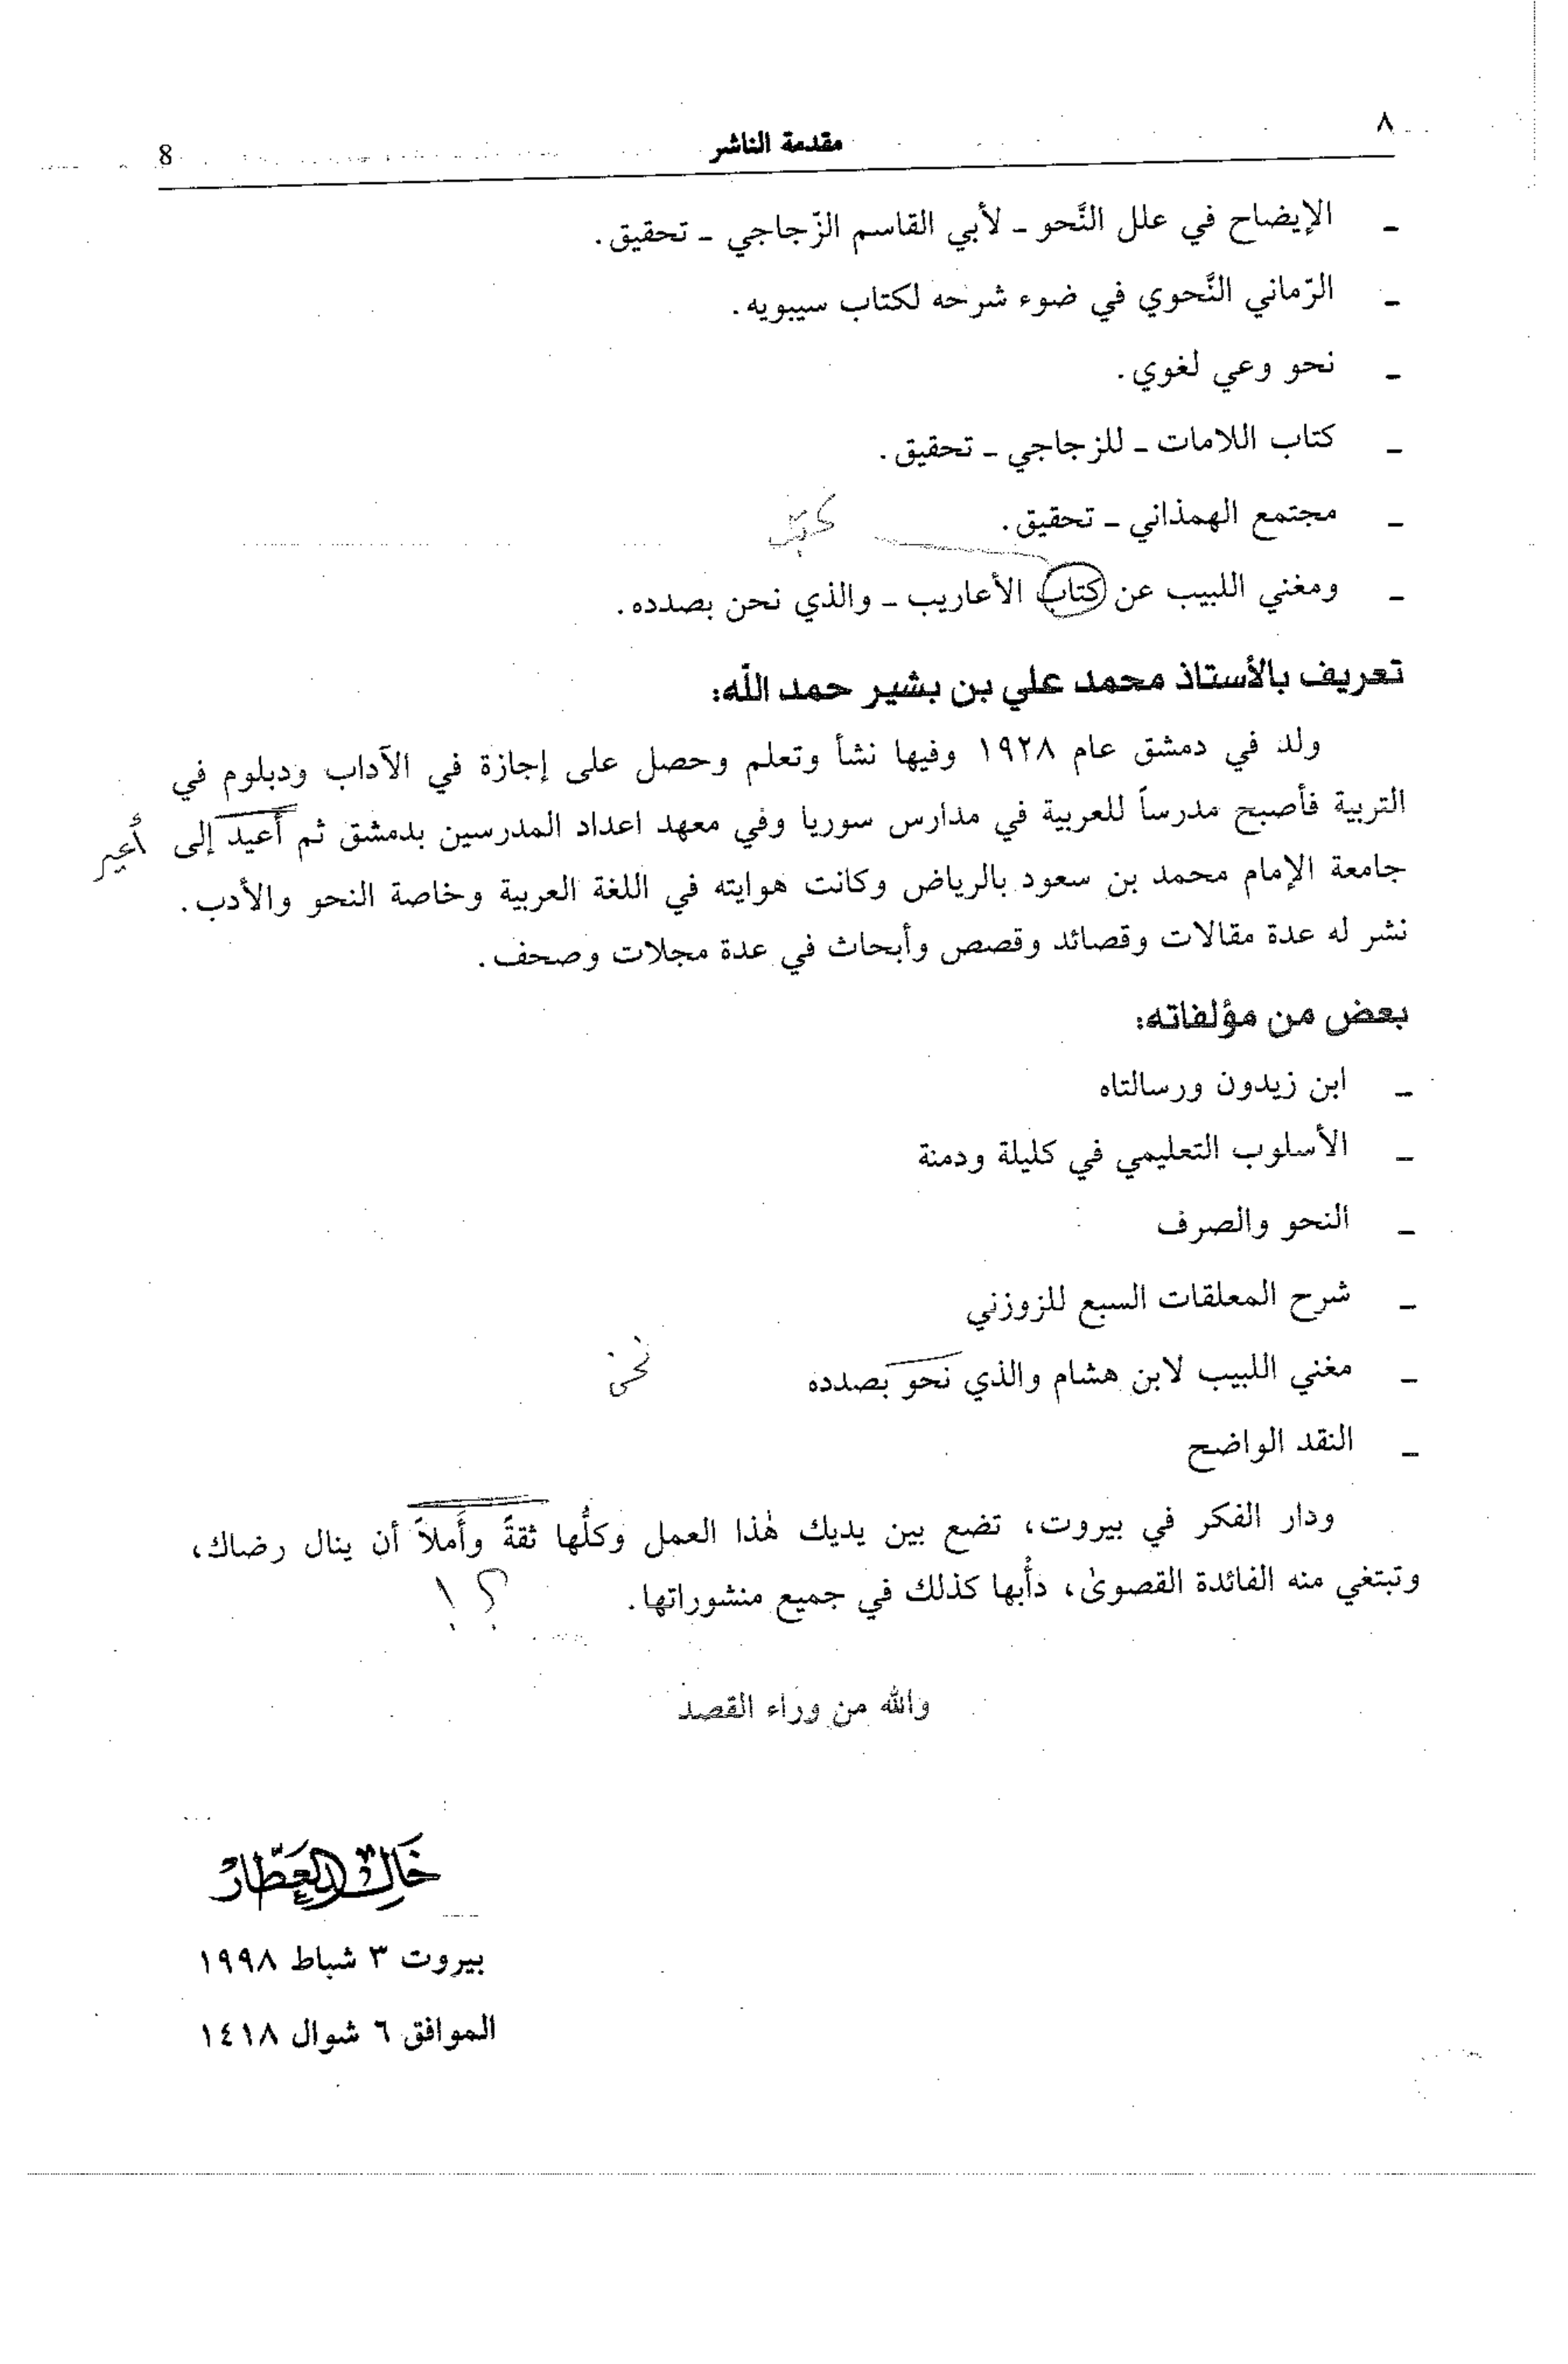 ٨
مقدمة الناشر
8
ـ الإيضاح في علل النَّحو ـ لأبي القاسم الزّجاجي ـ تحقيق.
ـ الرّماني النَّحوي في ضوء شرحه لكتاب سيبويه.
ـ نحو وعي لغوي.
ـ كتاب اللامات ـ للزجاجي ـ تحقيق.
ـ مجتمع الهمذاني ـ تحقيق.
كتب
ـ ومغني اللبيب عن كتاب الأعاريب ـ والذي نحن بصدده.
تعريف بالأستاذ محمد علي بن بشير حمد الله:
ولد في دمشق عام ١٩٢٨ وفيها نشأ وتعلم وحصل على إجازة في الآداب ودبلوم في
التربية فأصبح مدرساً للعربية في مدارس سوريا وفي معهد اعداد المدرسين بدمشق ثم أعيد إلى
أُعير
جامعة الإمام محمد بن سعود بالرياض وكانت هوايته في اللغة العربية وخاصة النحو والأدب.
نشر له عدة مقالات وقصائد وقصص وأبحاث في عدة مجلات وصحف.
بعض من مؤلفاته:
ـ ابن زيدون ورسالتاه
ـ الأسلوب التعليمي في كليلة ودمنة
ـ النحو والصرف
ـ شرح المعلقات السبع للزوزني
ـ مغني اللبيب لابن هشام والذي نحو بصدده
نحن
ـ النقد الواضح
ودار الفكر في بيروت، تضع بين يديك هٰذا العمل وكلُّها ثقةً وأَملاً أن ينال رضاك،
وتبتغي منه الفائدة القصوىٰ، دأْبها كذلك في جميع منشوراتها.
؟!
والله من وراء القصد
خَالِد العَطَّار
بيروت ٣ شباط ١٩٩٨
الموافق ٦ شوال ١٤١٨